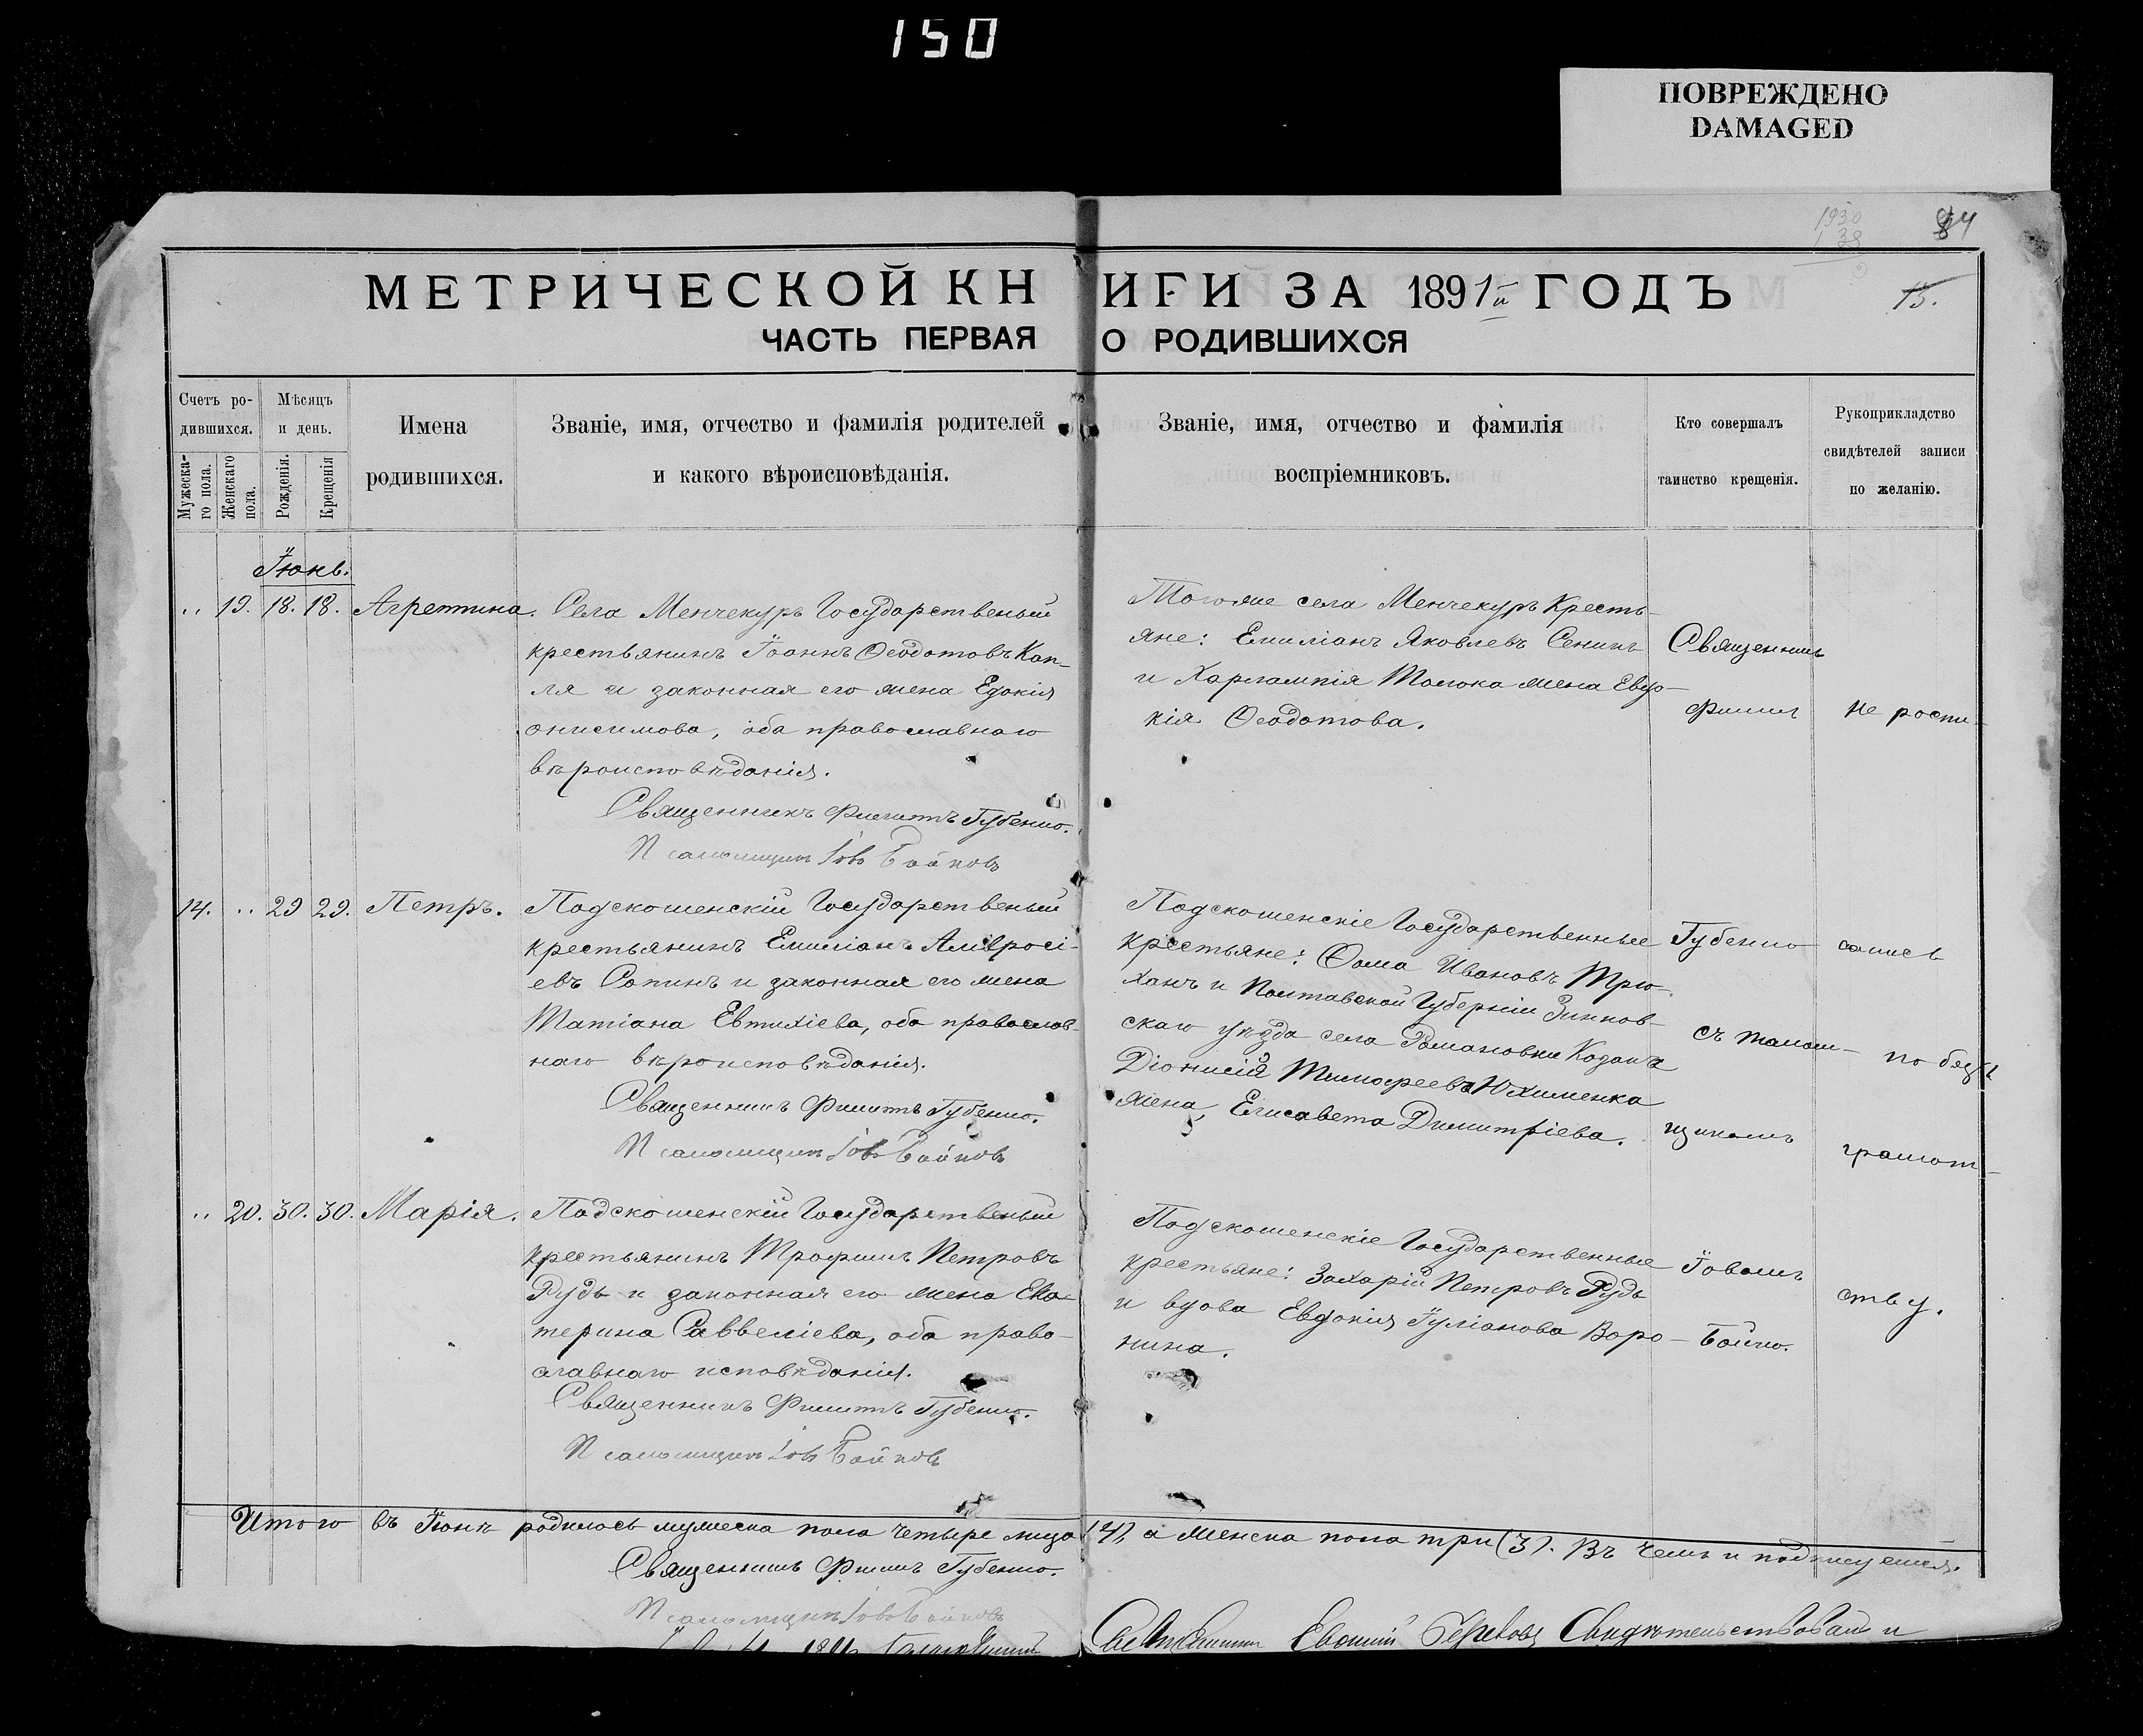 150
ПОВРЕЖДЕНО
DAMAGED
1930
38
84
МЕТРИЧЕСКОЙ КНИГИ ЗА 1891й ГОДЪ
15.
ЧАСТЬ ПЕРВАЯ О РОДИВШИХСЯ
Счетъ ро-
дившихся.
Мужеска-
го пола.
Женскаго
пола.
Мѣсяцъ
и день.
Рожденія.
Крещенія
Имена
родившихся.
Званіе, имя, отчество и фамилія родителей
и какого вѣроисповѣданія.
Званіе, имя, отчество и фамилія
воспріемниковъ.
Кто совершалъ
таинство крещенія.
Рукоприкладство
свидѣтелей записи
по желанію.
Іюнь.
" 19. 18. 18. Агреппина.
Села Менчекуръ Государственый
крестьянинъ Іоаннъ Ѳеодотовъ Кап-
ля и законная его жена Едокія
онисимова, оба православнаго
вѣроисповѣданія.
Священникъ Филиппъ Губенко.
Псаломщикъ Іовъ Бойковъ
Тогоже села Менчекуръ Кресть-
яне: Емиліанъ Яковлевъ Сенинъ
и Харлампія Толока жена Евдо-
кія Ѳеодотова.
14. " 29 29. Петръ.
Подскошенскій Государственый
крестьянинъ Емиліанъ Амвросі-
евъ Сапинъ и законная его жена
Татіана Евтихіева, оба православ-
наго вѣроисповѣданія.
Священникъ Филиппъ Губенко.
Псаломщикъ Іовъ Бойковъ
Подскошенскіе Государственные
крестьяне: Ѳома Ивановъ Трю-
ханъ и Полтавской Губерніи Зинков-
скаго уѣзда села Романовки Козака
Діонисія Тимофеева Юхименка
жена, Елисавета Димитріева.
" 20. 30. 30. Марія.
Подскошенскій Государственый
крестьянинъ Трофимъ Петровъ
Рудь и законная его жена Ека-
терина Саввеліева, оба право-
славнаго исповѣданія.
Священникъ Филиппъ Губенко.
Псаломщикъ Іовъ Бойковъ
Подскошенскіе Государственные
крестьяне: Захарій Петровъ Рудь
и вдова Евдокія Іуліанова Воро-
нина.
Священникъ
Филиппъ
Губенко
съ псалом-
щикомъ
Іовомъ
Бойко.
Не роспи-
сались
по безъ
грамот-
ству.
Итого въ Іюнѣ родилось мужеска пола четыре лица (4), а женска пола три (3). Въ чемъ и подписуемся.
Священникъ Филиппъ Губенко.
Псаломщикъ Іовъ Бойковъ
Свидѣтельствовалъ и